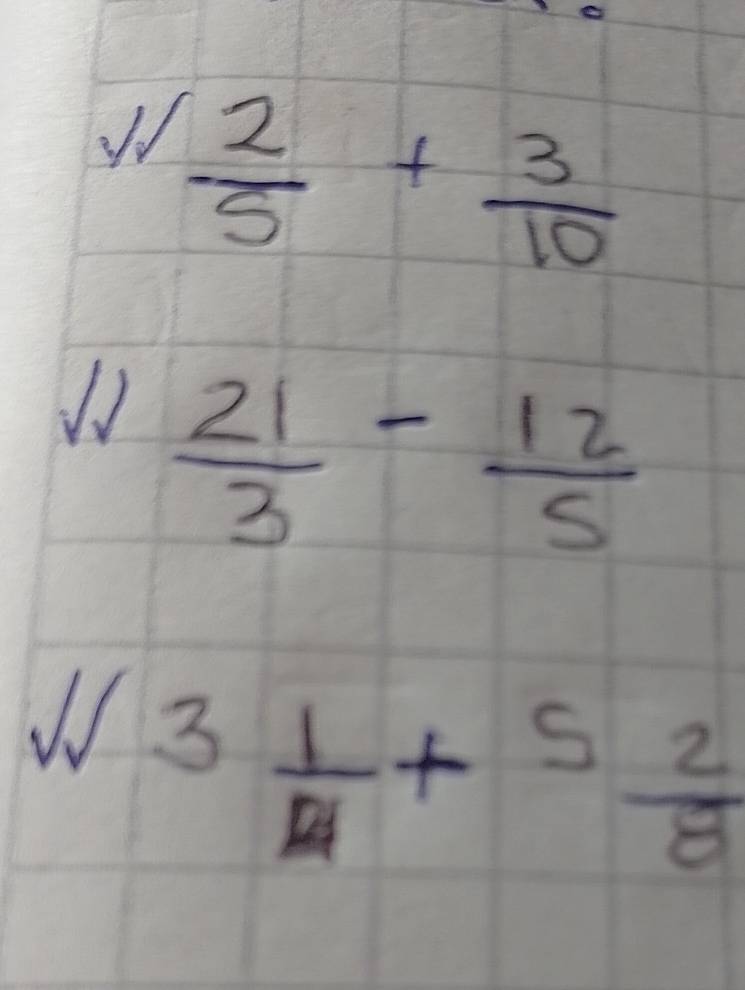 2/5 + 3/10
21/3 - 12/5
3 1/ + 5 2/8